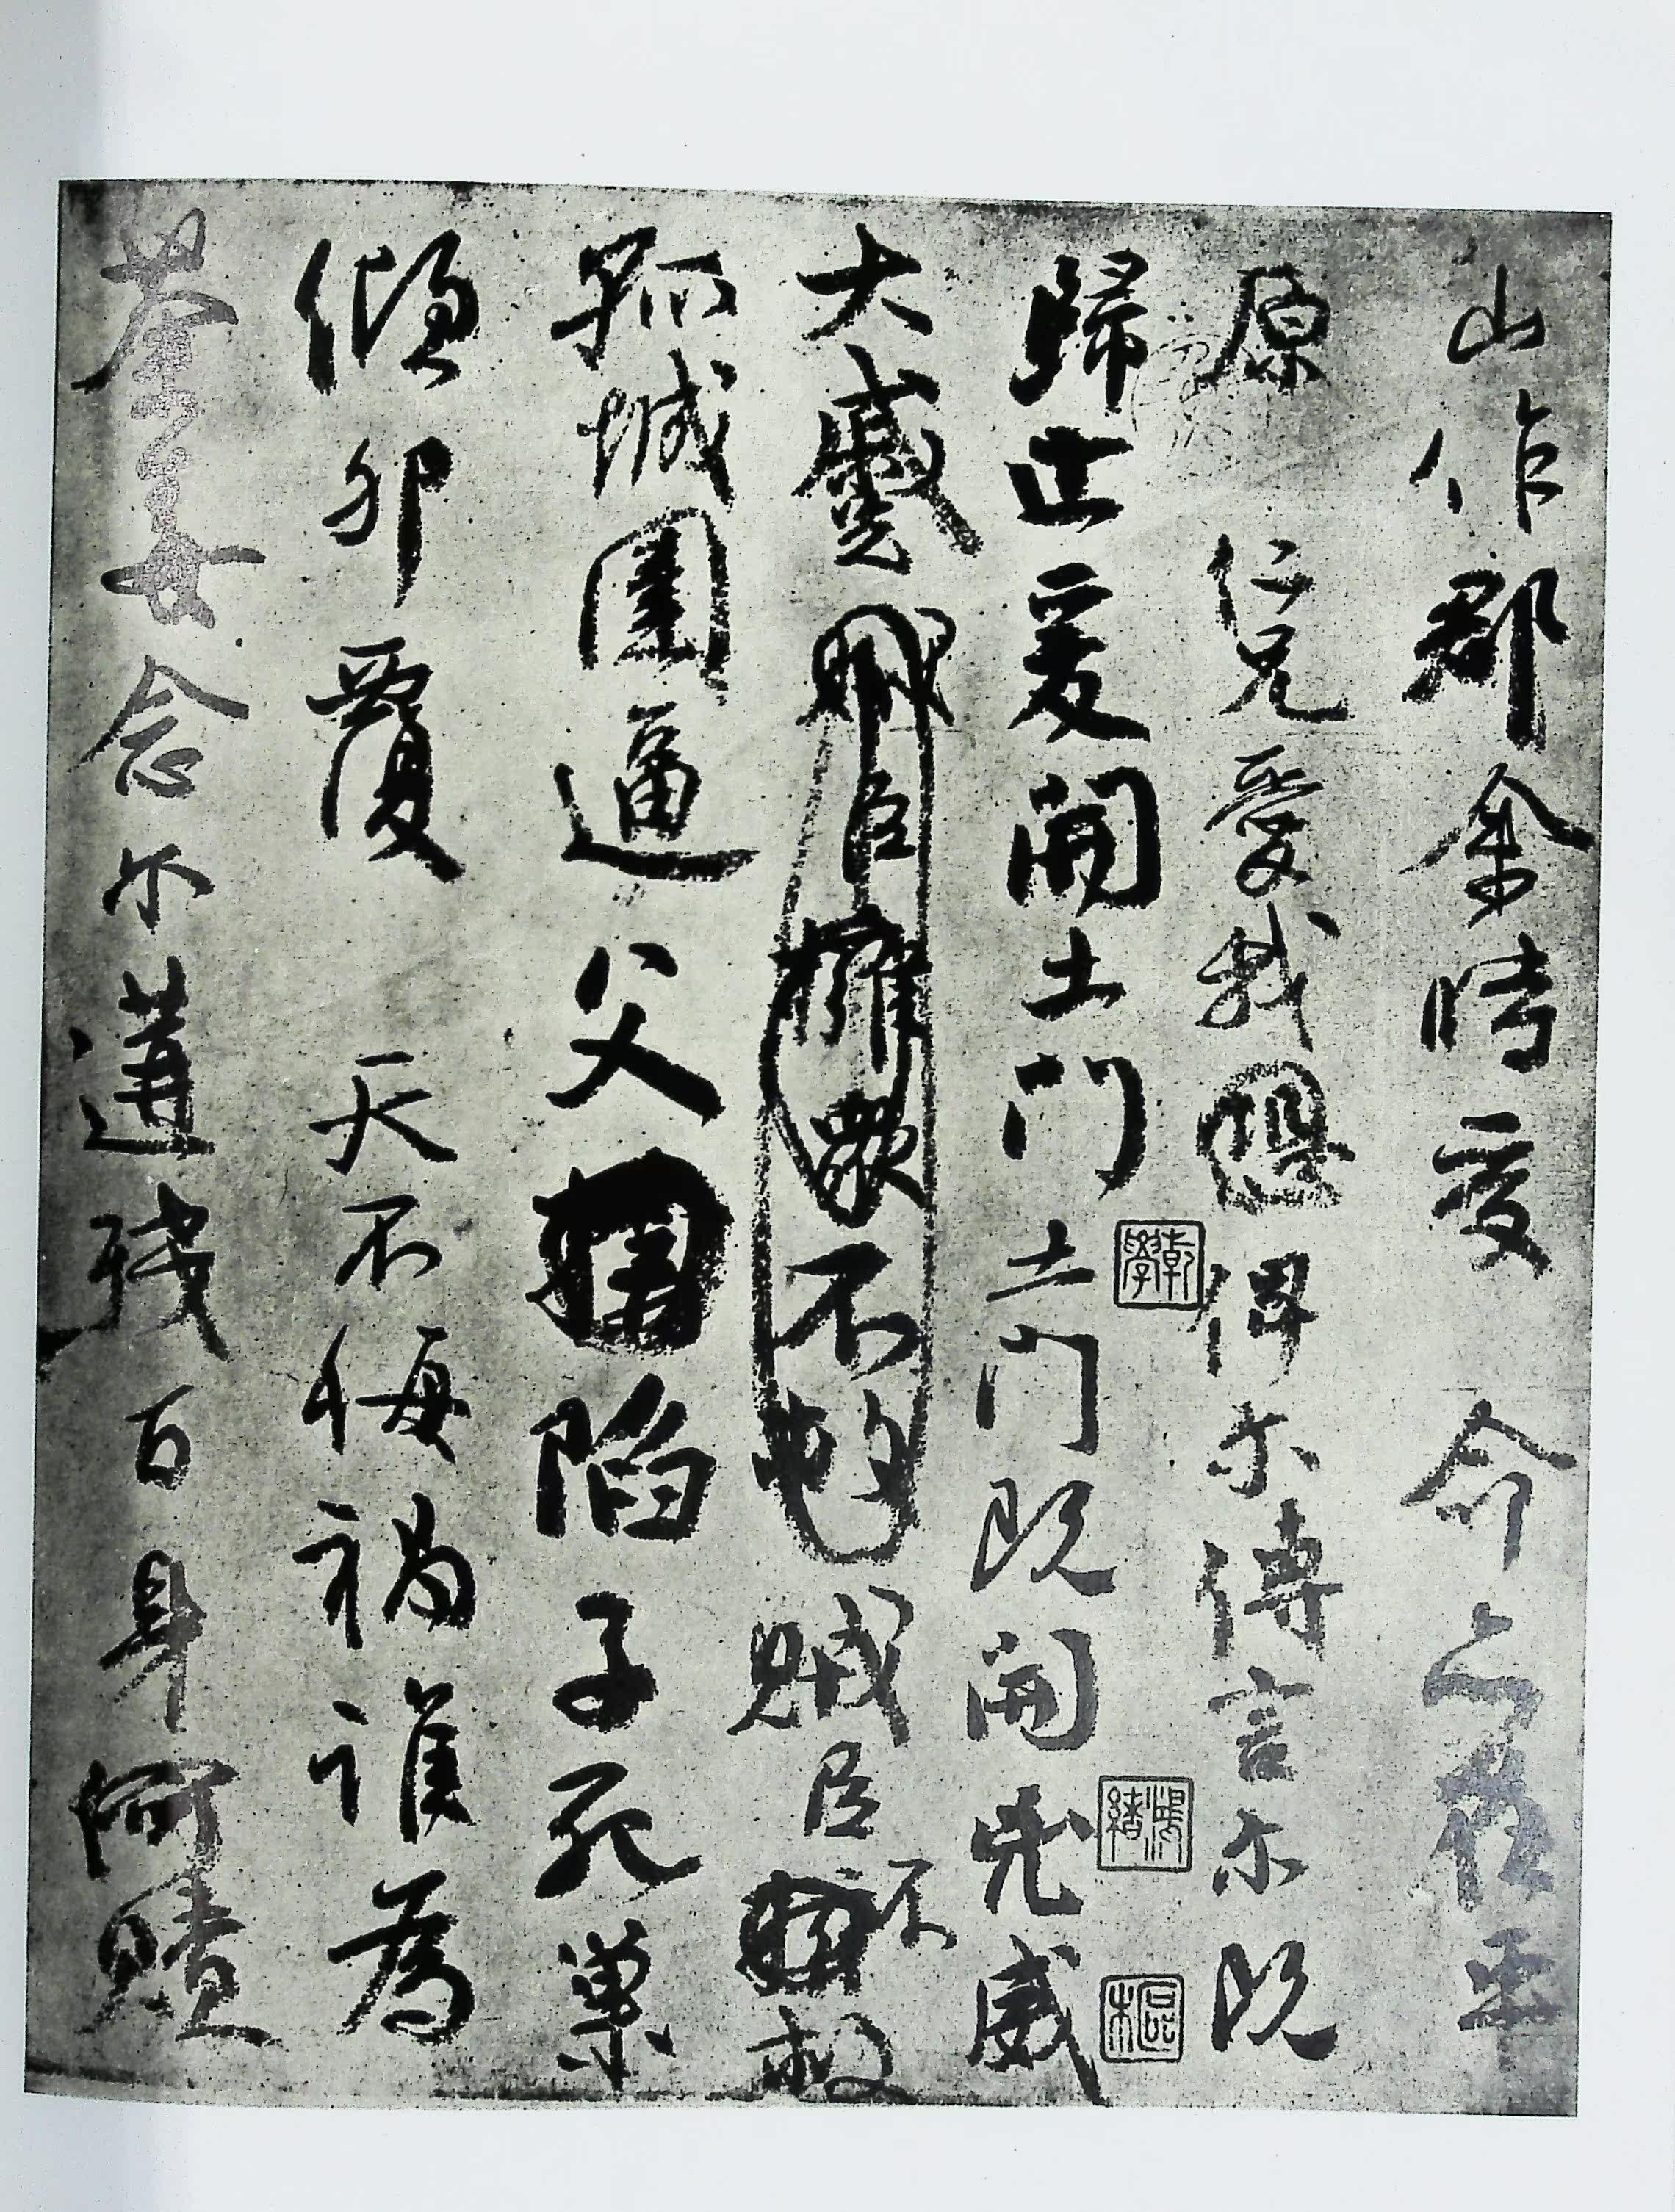 山作郡余時受命亦在平
原仁兄愛我俾尔傳言尔既
歸止爰開土門土門既開凶威
大蹙賊臣擁衆不救賊臣不救
孤城圍逼父陷子死巢
傾卵覆天不悔禍誰為
荼毒念尔遘殘百身何贖
乾學